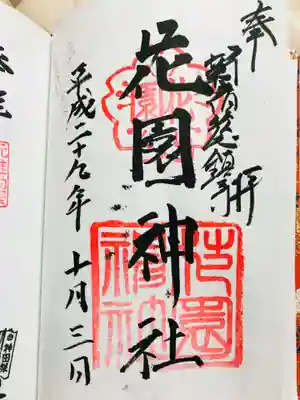 奉拝
新宿総鎮守
花園神社
平成二十九年十月三日
花園神社